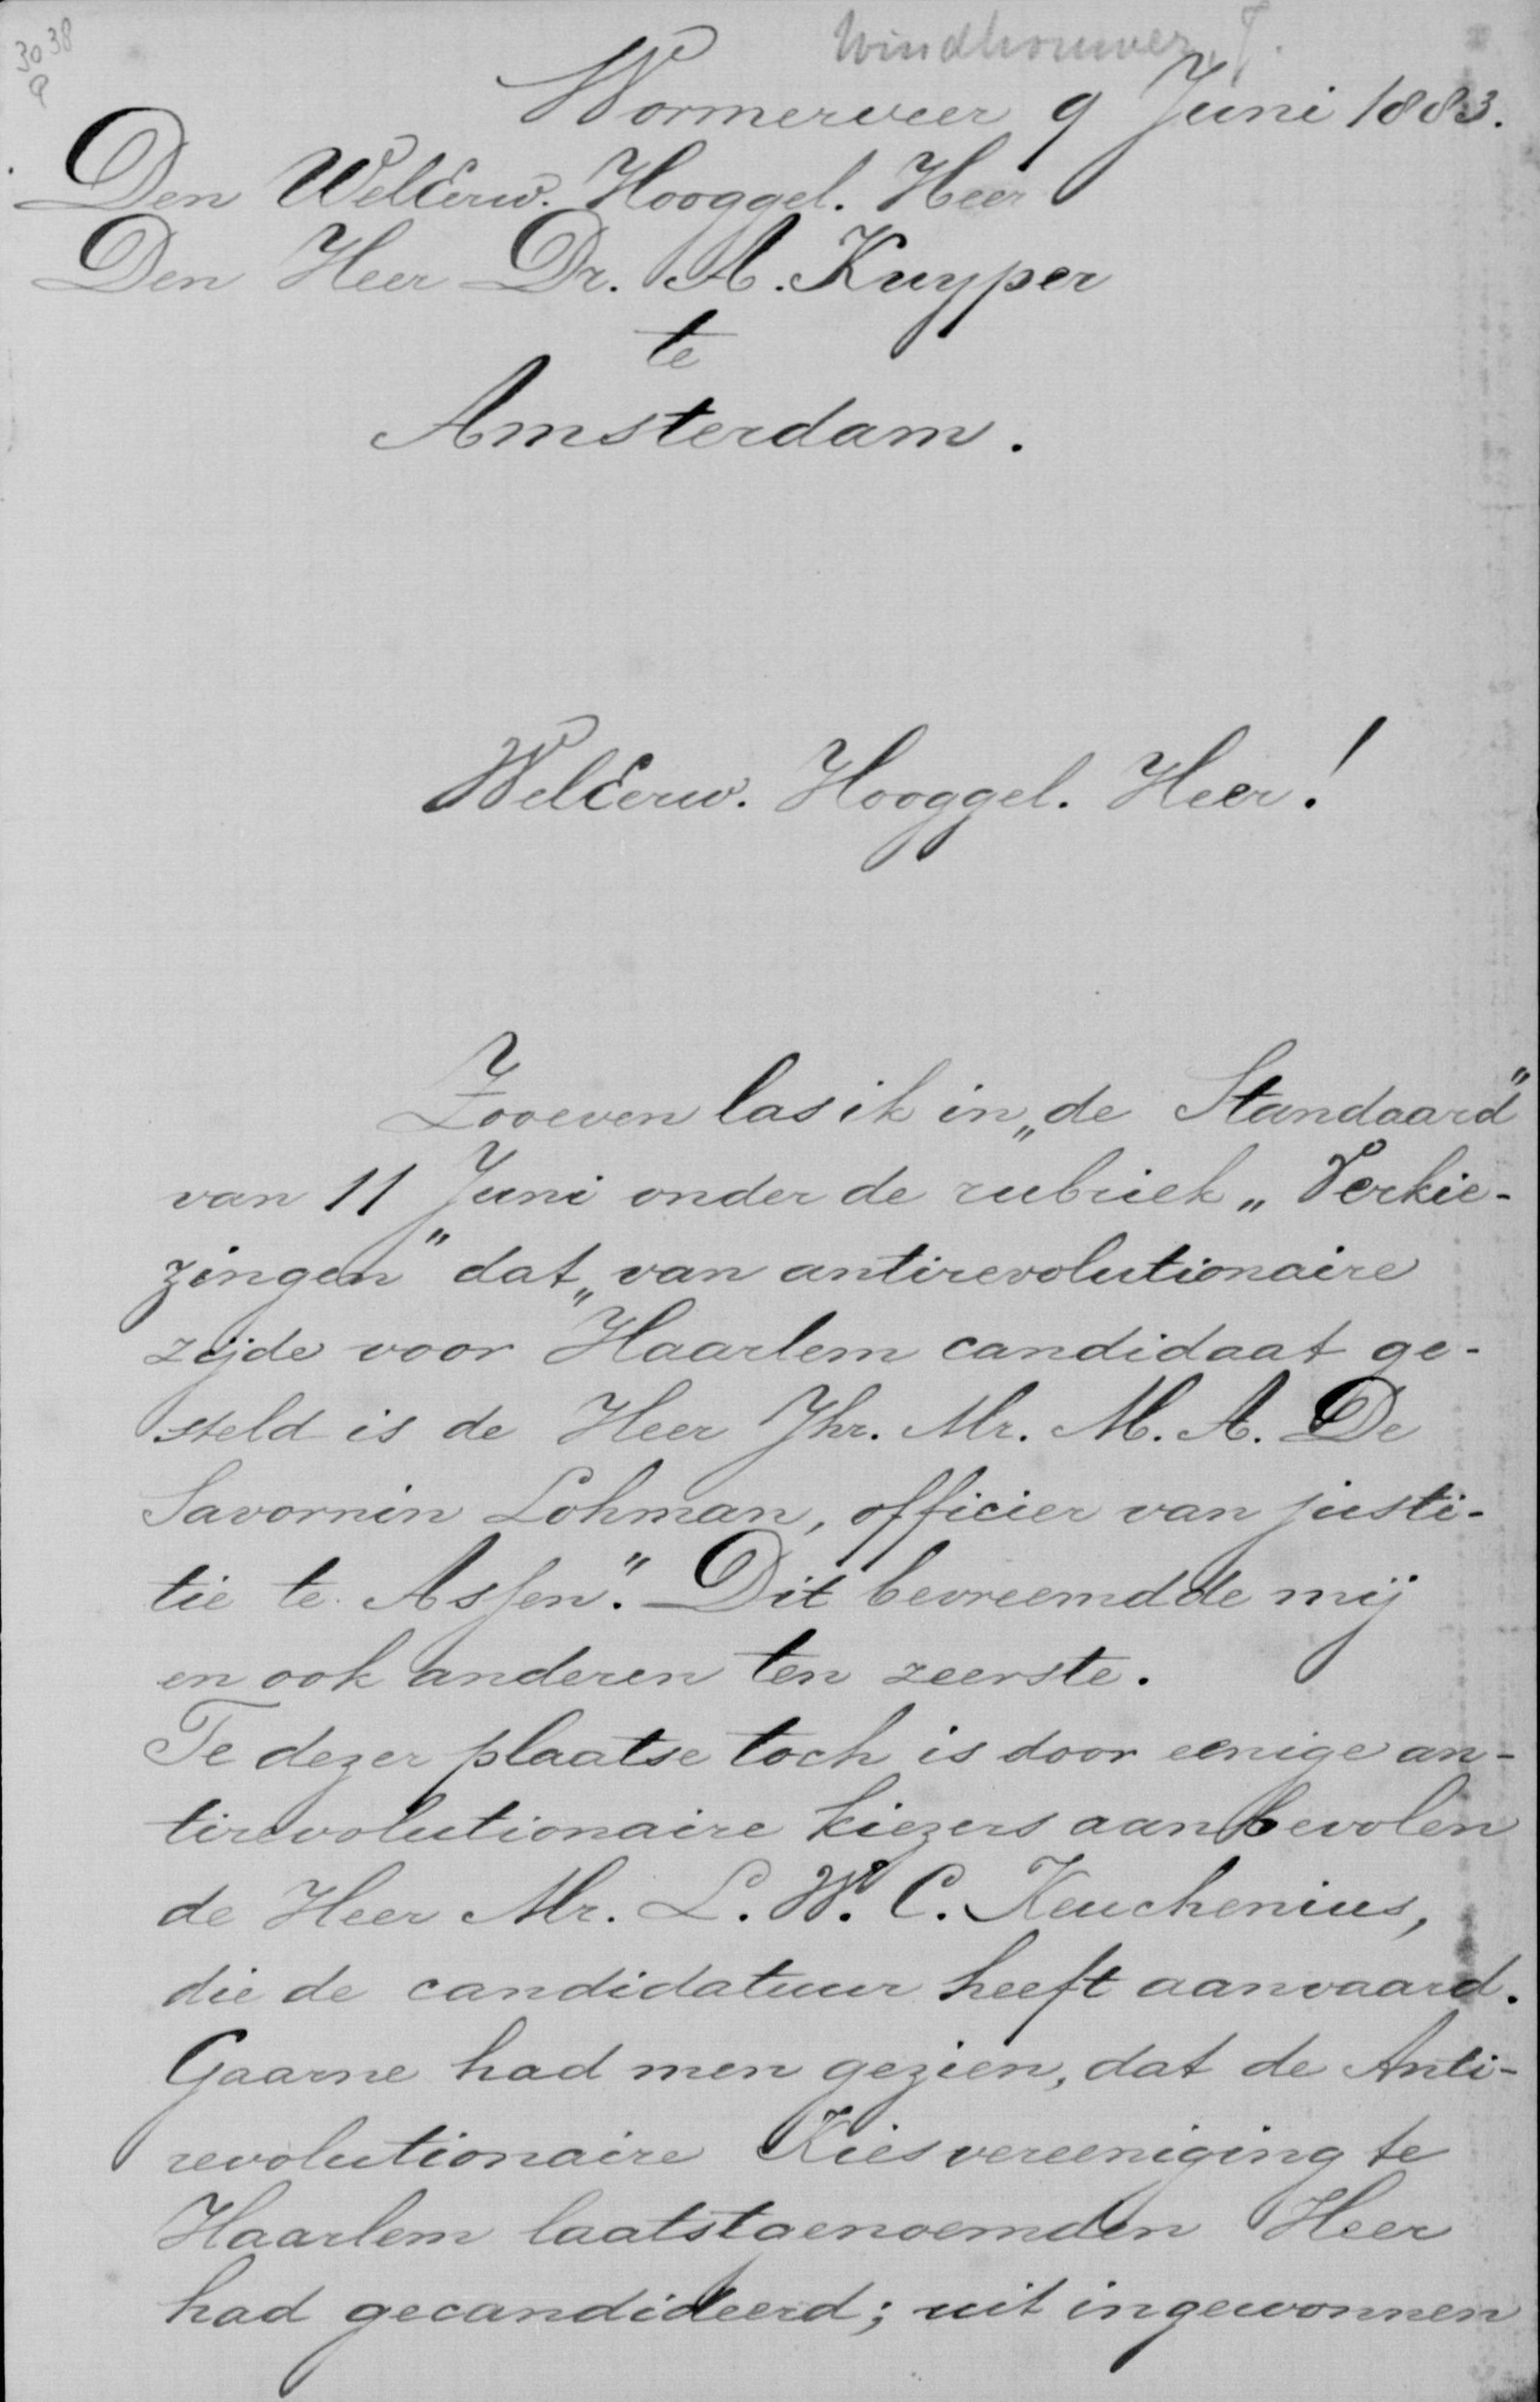 3038
a
Windhouwer, J.
Wormerveer 9 Juni 1883.
Den WelEerw. Hooggel. Heer
Den Heer Dr. A. Kuyper
te
Amsterdam.
WelEerw. Hooggel. Heer!
Zooeven las ik in „de Standaard"
van 11 Juni onder de rubriek „Verkie-
zingen" dat „van antirevolutionaire
zijde voor Haarlem candidaat ge-
steld is de Heer Jhr. Mr. M. A. De
Savornin Lohman, officier van justi-
tie te Assen." Dit bevreemdde mij
en ook anderen ten zeerste.
Te dezer plaatse toch is door eenige an-
tirevolutionaire kiezers aanbevolen
de Heer Mr. L. W. C. Keuchenius,
die de candidatuur heeft aanvaard.
Gaarne had men gezien, dat de Anti-
revolutionaire Kiesvereeniging te
Haarlem laatstgenoemden Heer
had gecandideerd; uit ingewonnen